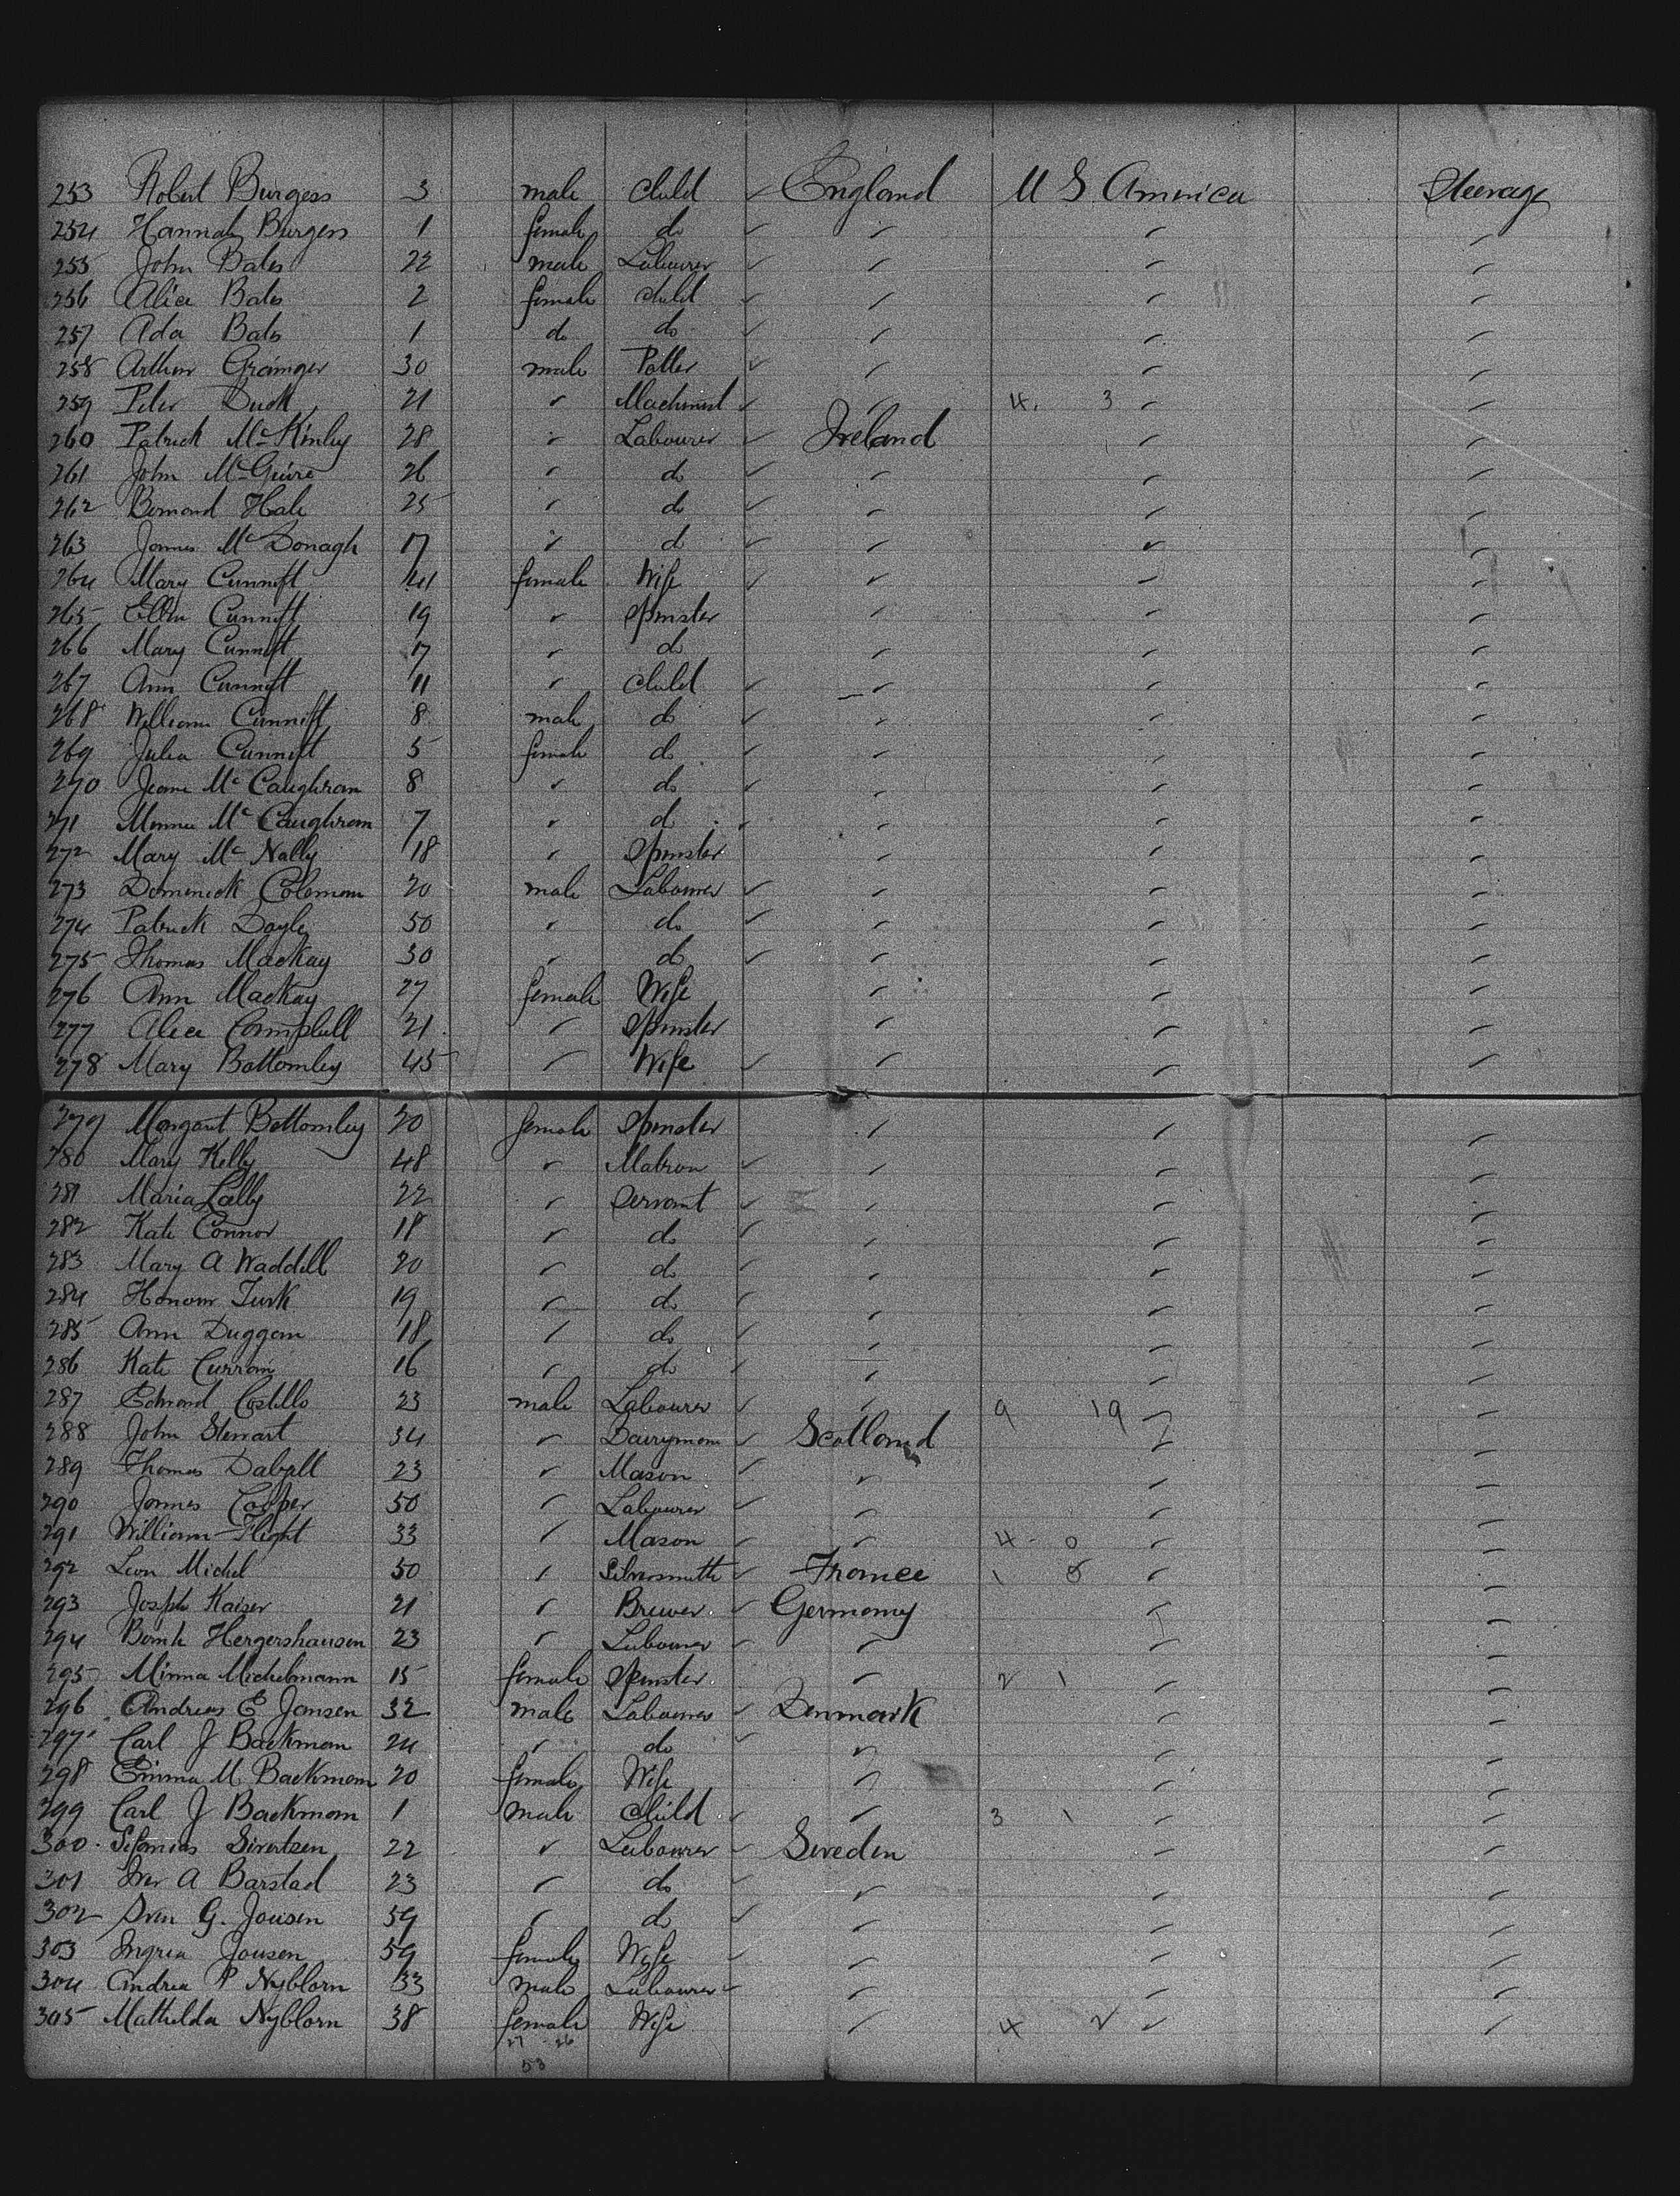 253 Robert Burgess 3 male Child ✓ England U S America Steerage
254 Hannah Burgess 1 female do ✓ ✓ ✓ ✓
255 John Bates 22 male Labourer ✓ ✓ ✓ ✓
256 Alice Bates 2 female child ✓ ✓ ✓ ✓
257 Ada Bates 1 do do ✓ ✓ ✓ ✓
258 Arthur Grainger 30 male Potter ✓ ✓ ✓ ✓
259 Peter Duck 21 ✓ Machinist ✓ ✓ 4. 3 ✓ ✓
260 Patrick McKinley 28 ✓ Labourer ✓ Ireland ✓ ✓
261 John McGuire 26 ✓ do ✓ ✓ ✓ ✓
262 Bernard Hale 25 ✓ do ✓ ✓ ✓ ✓
263 James McDonagh 17 ✓ d ✓ ✓ ✓ ✓
264 Mary Cunnift 41 female Wife ✓ ✓ ✓ ✓
265 Ellen Cunnift 19 ✓ Spinster ✓ ✓ ✓
266 Mary Cunnift 17 ✓ do ✓ ✓ ✓
267 Ann Cunnift 11 ✓ child ✓ ✓ ✓ ✓
268 William Cunnift 8 male do ✓ ✓ ✓ ✓
269 Julia Cunnift 5 female do ✓ ✓ ✓ ✓
270 Jeanie McCaughran 8 ✓ do ✓ ✓ ✓ ✓
271 Minnie McCaughran 7 ✓ do ✓ ✓ ✓ ✓
272 Mary McNally 18 ✓ Spinster ✓ ✓ ✓
273 Dominick Coleman 20 male Labourer ✓ ✓ ✓ ✓
274 Patrick Doyle 50 ✓ do ✓ ✓ ✓ ✓
275 Thomas Mackay 30 ✓ do ✓ ✓ ✓ ✓
276 Ann Mackay 27 female Wife ✓ ✓ ✓
277 Alice Campbell 21 ✓ Spinster ✓ ✓ ✓
278 Mary Bottomley 45 ✓ Wife ✓ ✓ ✓ ✓
279 Margaret Bottomley 20 female Spinster ✓ ✓ ✓
280 Mary Kelly 48 ✓ Matron ✓ ✓ ✓ ✓
281 Maria Lally 22 ✓ Servant ✓ ✓ ✓ ✓
282 Kate Connor 18 ✓ do ✓ ✓ ✓ ✓
283 Mary A Waddell 20 ✓ do ✓ ✓ ✓ ✓
284 Honour Turk 19 ✓ do ✓ ✓ ✓ ✓
285 Ann Duggan 18 ✓ do ✓ ✓ ✓ ✓
286 Kate Curran 16 ✓ do ✓ ✓ ✓ ✓
287 Edmond Costello 23 male Labourer ✓ ✓ 9 19 ✓ ✓
288 John Stewart 34 ✓ Dairyman ✓ Scotland ✓ ✓
289 Thomas Dalzell 23 ✓ Mason ✓ ✓ ✓ ✓
290 James Cooper 50 ✓ Labourer ✓ ✓ ✓ ✓
291 William Flight 33 ✓ Mason ✓ ✓ 4 0 ✓ ✓
292 Leon Michel 50 ✓ Silversmith ✓ France 1 0 ✓ ✓
293 Joseph Kaiser 21 ✓ Brewer ✓ Germany ✓ ✓
294 Hergershausen 23 ✓ Labourer ✓ ✓ ✓ ✓
295 Minna Michelmann 15 female Spinster ✓ 2 1 ✓ ✓
296 Andreas E Jansen 32 male Labourer ✓ Denmark ✓ ✓
297 Carl J Backman 24 ✓ do ✓ ✓ ✓ ✓
298 Emma M Backman 20 female Wife ✓ ✓ ✓
299 Carl J Backman 1 male Child ✓ ✓ 3 1 ✓ ✓
300 Sivertsen 22 ✓ Labourer ✓ Sweden ✓ ✓
301 Iver A Barstad 23 ✓ do ✓ ✓ ✓ ✓
302 Sven G. Jousen 59 ✓ do ✓ ✓ ✓ ✓
303 Jousen 59 female Wife ✓ ✓ ✓ ✓
304 Andrea P Nyblorn 33 male Labourer ✓ ✓ ✓ ✓
305 Mathelda Nyblorn 38 female Wife ✓ 4 2 ✓ ✓
27 26
53